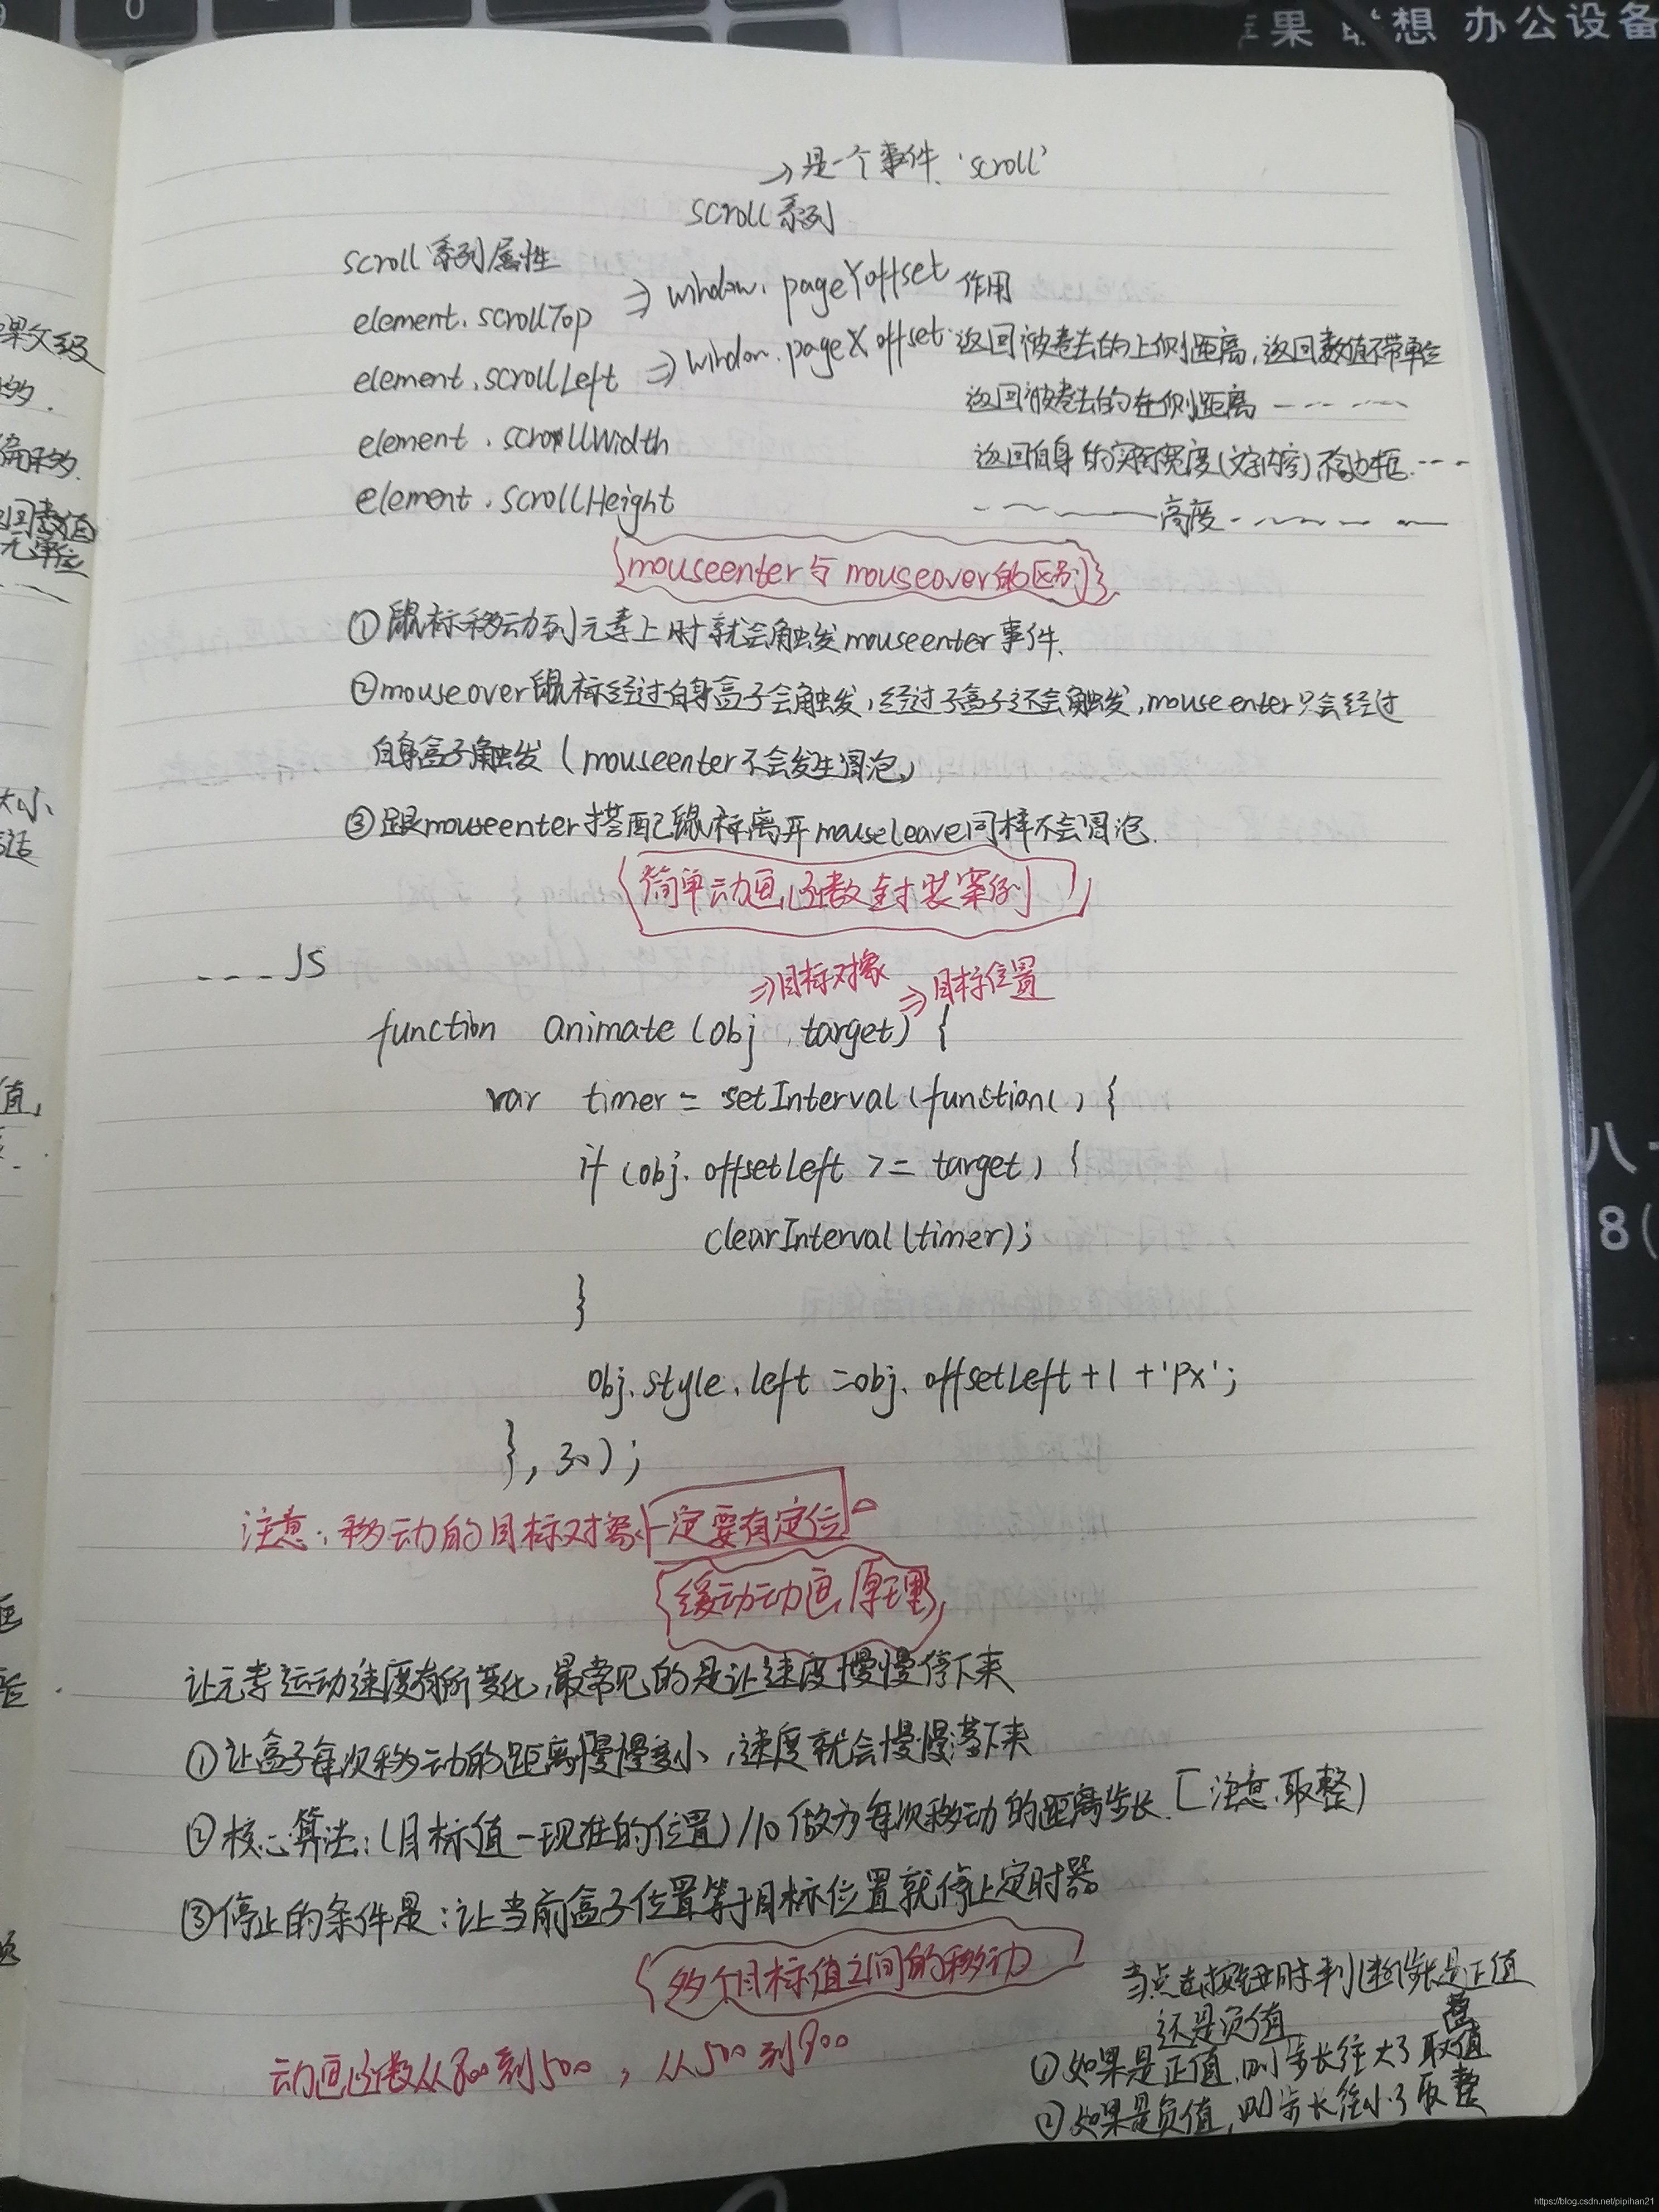 果 想 办公设备
→是一个事件.'scroll'
scroll系列
scroll系列属性
作用
element.scrollTop ⇒ window.pageYoffset
返回被卷去的上侧距离,返回数值不带单位
element.scrollLeft ⇒ window.pageXoffset
返回被卷去的左侧距离 ----
element.scrollWidth
返回自身的实际宽度(文字内容)不含边框.---
element.scrollHeight
-----高度-----
mouseenter与mouseover的区别
①鼠标移动到元素上时就会触发mouseenter事件.
②mouseover鼠标经过自身盒子会触发,经过子盒子还会触发,mouseenter只会经过
自身盒子触发(mouseenter不会发生冒泡)
③跟mouseenter搭配鼠标离开mouseleave同样不会冒泡.
简单动画函数封装案例
----JS
⇒目标对象 ⇒目标位置
function animate(obj,target) {
var timer = setInterval(function() {
if (obj.offsetLeft >= target) {
clearInterval(timer);
}
obj.style.left =obj.offsetLeft+1+'px';
},30);
注意:移动的目标对象一定要有定位
缓动动画原理
让元素运动速度有所变化,最常见的是让速度慢慢停下来
①让盒子每次移动的距离慢慢变小,速度就会慢慢落下来
②核心算法:(目标值-现在的位置)/10 做为每次移动的距离步长.[注意取整)
③停止的条件是:让当前盒子位置等于目标位置就停止定时器
多个目标值之间的移动
动画函数从800到500,从500到800
当点击按钮时判断步长是正值
还是负值
①如果是正值,则步长往大了取整
②如果是负值,则步长往小了取整
果父级
的.
回数值
无单位
大小
值,
八
8(
https://blog.csdn.net/pipihan21